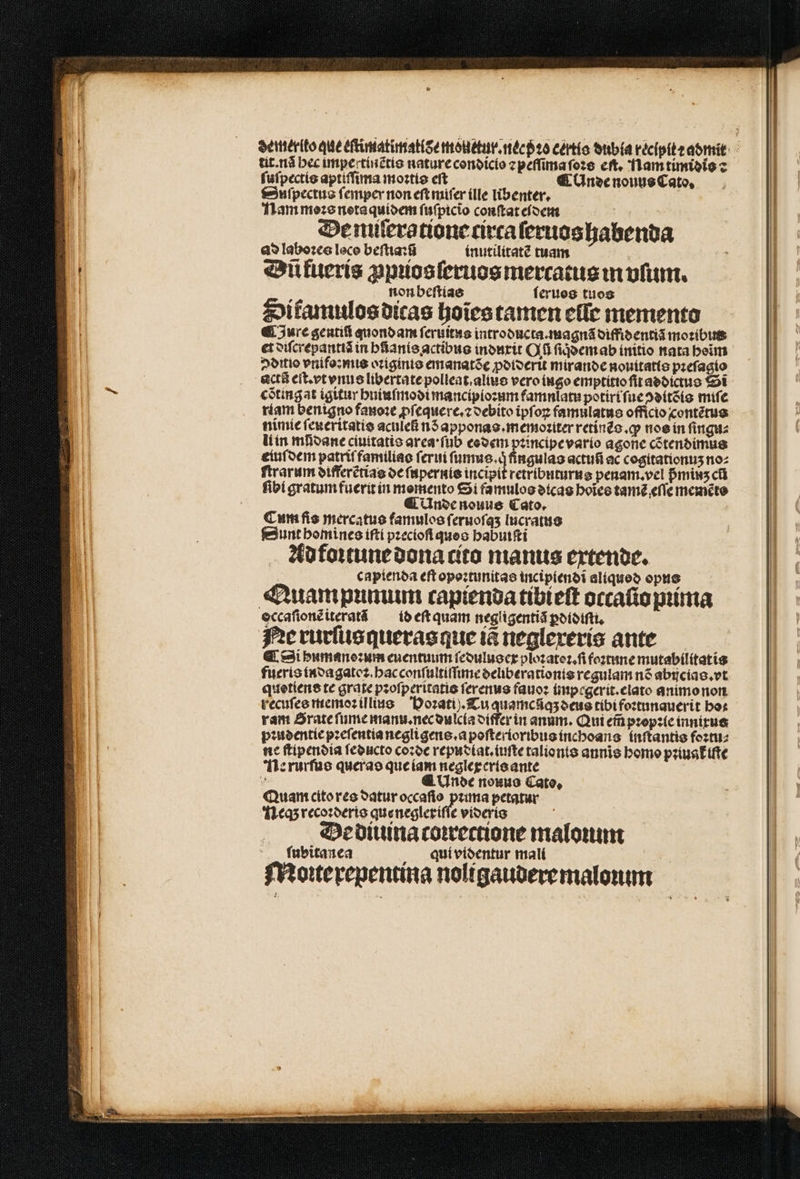 demerito que estimatimatiõe mouetur. nec ꝓ vero certis dubia recipit ⁊ admit
tit. nã hec impertinẽtis nature condicio ⁊ pessima sors est. Nam timidis ⁊
suspectis aptissima mortis est ¶ Unde nouus Cato.
Suspectus semper non est miser ille libenter.
Nam mors nota quidem suspicio constat eisdem
De miseratione circa seruos habenda
ad labores loco bestiarũ inutilitatẽ tuam
Dũ fueris ꝓprios seruos mercatus in vsum.
non bestias seruos tuos
Si famulos dicas hoĩes tamen esse memento
¶ Jure gentiũ quondam seruitus introducta. magnã diffidentiã moribus
et discrepantiã in hũanis actibus induxit Qũ siq̇dem ab initio nata hoĩm
ↄditio vniformis originis emanatõe ꝓdiderit mirande nouitatis presagio
actũ est. vt vnus libertate polleat. alius vero iugo emptitio sit addictus Si
cõtingat igitur huiusmodi mancipiorum famulatu potiri sue ↄditõis mise
riam benigno fauore ꝓsequere. ⁊ debito ipsoꝝ famulatus officio contẽtus
nimie seueritatis aculeũ nõ apponas. memoriter retinẽs. ꝙ nos in singu⸗
li in mũdane ciuitatis area sub eodem principe vario agone cõtendimus
eiusdem patrisfamilias serui sumus. q̇ singulas actuũ ac cogitationuꝫ no⸗
strarum differẽtias de supernis incipit retributurus penam. vel p̃miuꝫ cũ
sibi gratum fuerit in momento Si famulos dicas hoĩes tamẽ esse memẽto
¶ Unde nouus Cato.
Cum sis mercatus famulos seruosqꝫ lucratus
Sunt homines isti preciosi quos habuisti
Ad fortune dona cito manus extende.
capienda est oportunitas incipiendi aliquod opus
Quam primum capienda tibi est occasio prima
occasionẽ iteratã id est quam negligentiã ꝑdidisti.
Ne rursus queras que iã neglexeris ante
¶ Si humanorum euentuum sedulus explorator. si fortune mutabilitatis
fueris indagator. hac consultissime deliberationis regulam nõ abijcias. vt
quotiens te grate prosperitatis serenus fauor impegerit. elato animo non
recuses memor illius Horatij. Tu quamcũqꝫ deus tibi fortunauerit ho⸗
ram Grate sume manu. nec dulcia differ in anum. Qui em̃ proprie innixus
prudentie presentia negligens. a posterioribus inchoans instantis fortu⸗
ne stipendia seducto corde repudiat. iuste talionis annis homo priuat̃ iste
Ne rursus queras que iam neglexeris ante
¶ Unde nouus Cato.
Quam cito res datur occasio prima petatur
Neqꝫ recorderis que neglexisse videris
De diuina correctione malorum
subitanea qui videntur mali
Morte repentina noli gaudere malorum